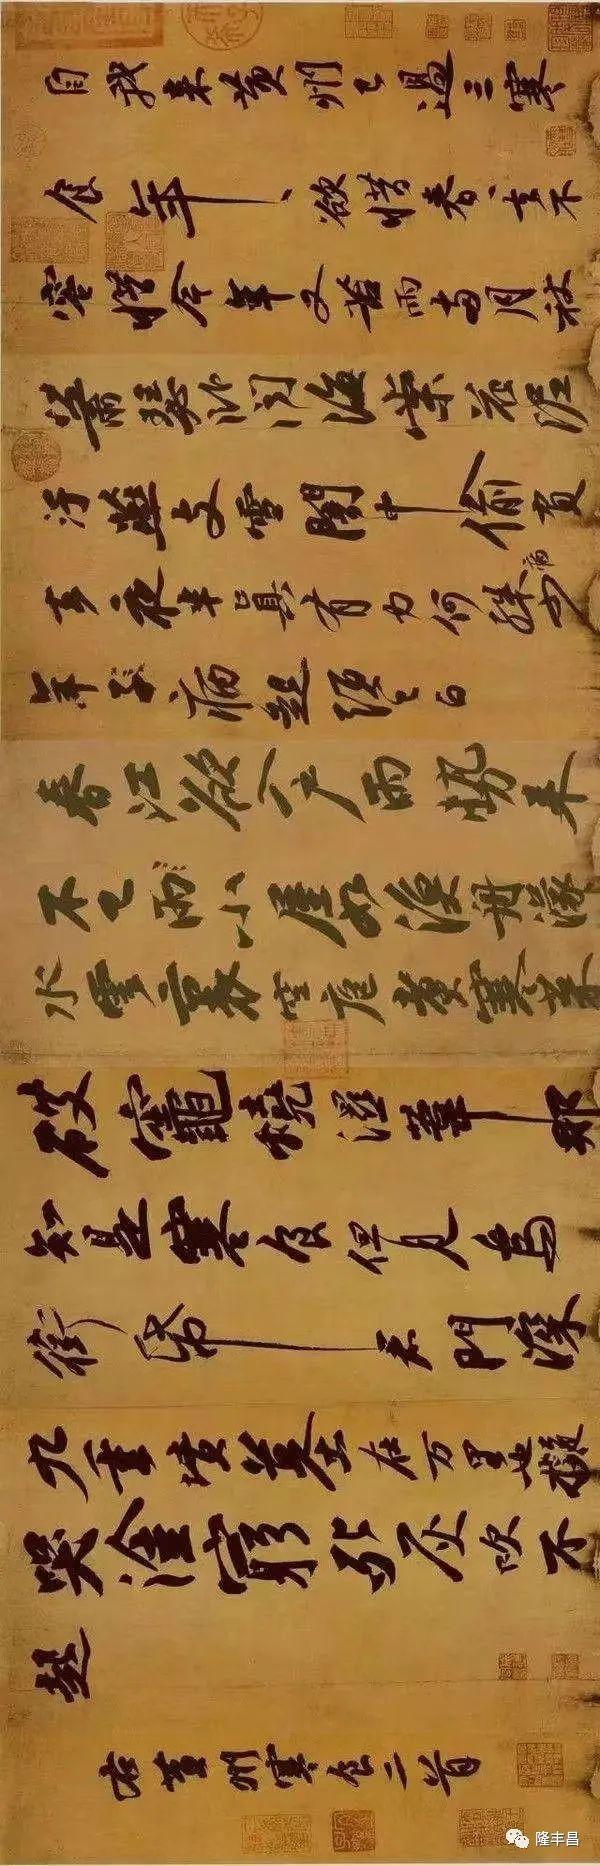 自我来黄州已過三寒
食年〻欲惜春〻去不
容惜今年又苦雨兩月秋
蕭瑟卧聞海棠花泥
汙燕支雪闇中偷負
去夜半真有力何殊病少
年子病起頭已白
春江欲入户雨勢来
不已雨小屋如漁舟濛〻
水雲裏空庖煮寒菜
破竈燒濕葦那
知是寒食但見烏
銜帋君門深
九重墳墓在万里也擬
哭塗窮死灰吹不
起
右黄州寒食二首
隆丰昌